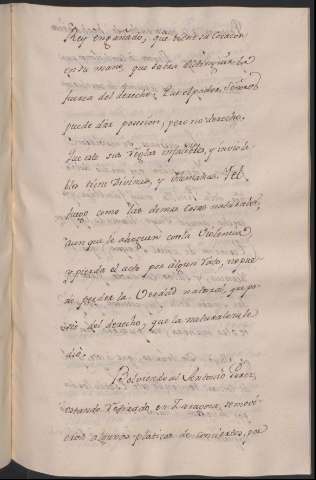 Rey engañado, que tiene su Corazon
en su mano, que sabea
fuerza del derecho. Que el poder
puede dar posesion, pero no derecho.
Que este sus reglas infalibles, y inviola
bles tiene Divinas, y Humanas. Y el
luego como las demas cosas naturales,
aunque le aneguen con la Violencia,
y pierda el acto por algun Vado, no pue-
de perder la Verdad natural, y apo-
sesis del derecho, que la naturaleza le
dió.
Bolviendo al Antonio Perez,
estando refixado en Zaragoza, se movi
eron algunas platicas de conciertos, por